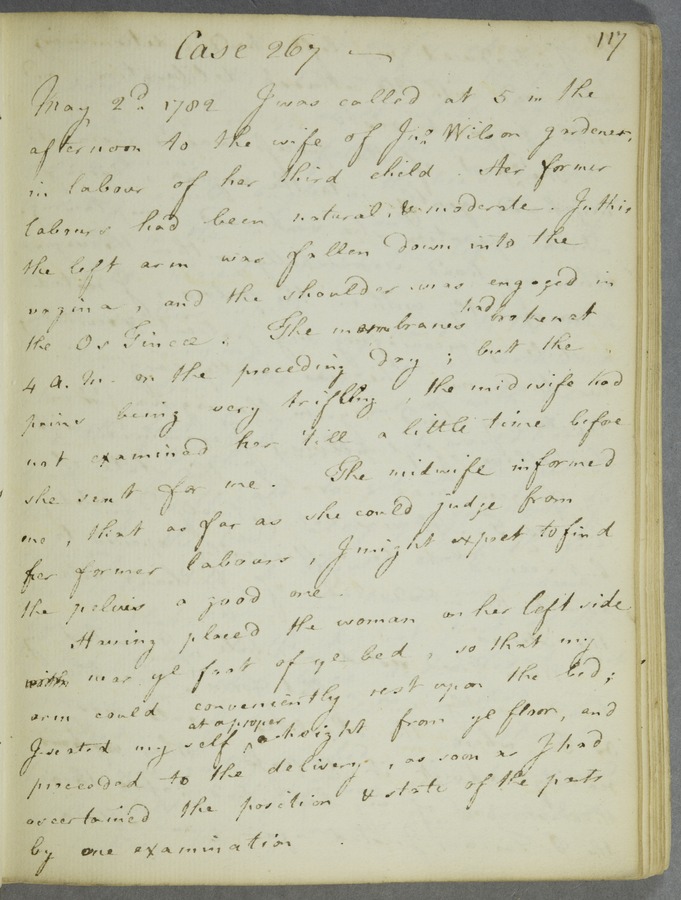 117
Case 267 —
May 2d. 1782 I was called at 5 in the
afternoon to the wife of Jno. Wilson gardener,
in labour of her third child. Her former
labours had been natural, & moderate. In this
the left arm was fallen down into the
vagina, and the shoulder was engaged in
the Os Tincæ. The membranes had broken at
4 a.m. on the preceding day; but the
pains being very trifling, the midwife had
not examined her 'till a little time before
she sent for me. The midwife informed
me, that as far as she could judge from
her former labours, I might expect to find
the pelvis a good one.
Having placed the woman on her left side
near ye foot of ye bed, so that my
arm could conveniently rest upon the bed;
I seated my self at a proper height from ye floor, and
proceeded to the delivery, as soon as I had
ascertained the position & state of the parts
by one examination.